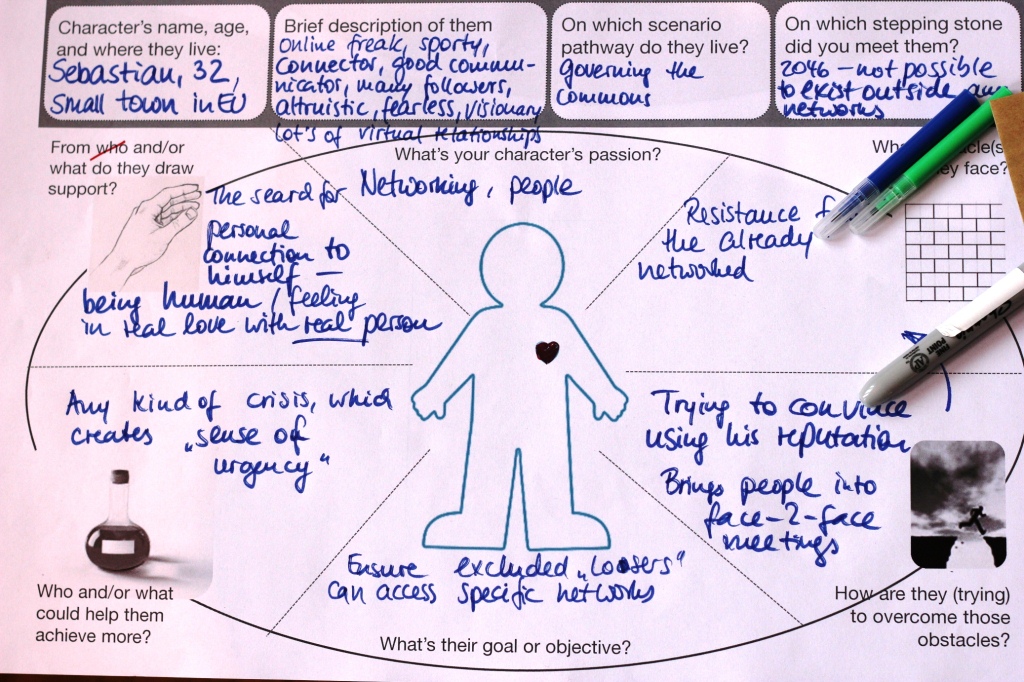 Character's name, age,
and where they live:
Sebastian, 32,
small town in EU
Brief description of them
Online freak, sporty,
connector, good commu-
nicator, many followers,
altruistic, fearless, visionary
lot's of virtual relationships
On which scenario
pathway do they live?
governing the
commons
On which stepping stone
did you meet them?
2046 – not possible
to exist outside any
networks
From who and/or
what do they draw
support?
The search for
personal
connection to
himself —
being human / feeling
in real love with real person
What's your character's passion?
Networking, people
they face?
Resistance
the already
networked
Any kind of crisis, which
creates „sense of
urgency"
Who and/or what
could help them
achieve more?
Trying to convince
using his reputation
Brings people into
face-2-face
meetings
How are they (trying)
to overcome those
obstacles?
Ensure excluded „loosers"
can access specific networks
What's their goal or objective?
FINE
POINT